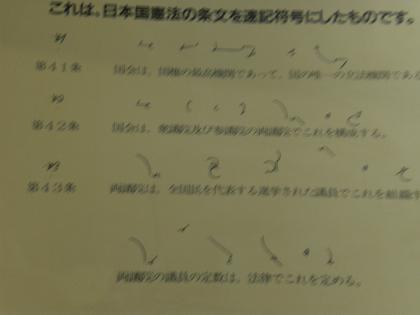 これは、日本国憲法の条文を速記符号にしたものです。
第41条 国会は、国権の最高機関であって、国の唯一の立法機関である
第42条 国会は、衆議院及び参議院の両議院でこれを構成する。
第43条 両議院は、全国民を代表する選挙された議員でこれを組織す
両議院の議員の定数は、法律でこれを定める。